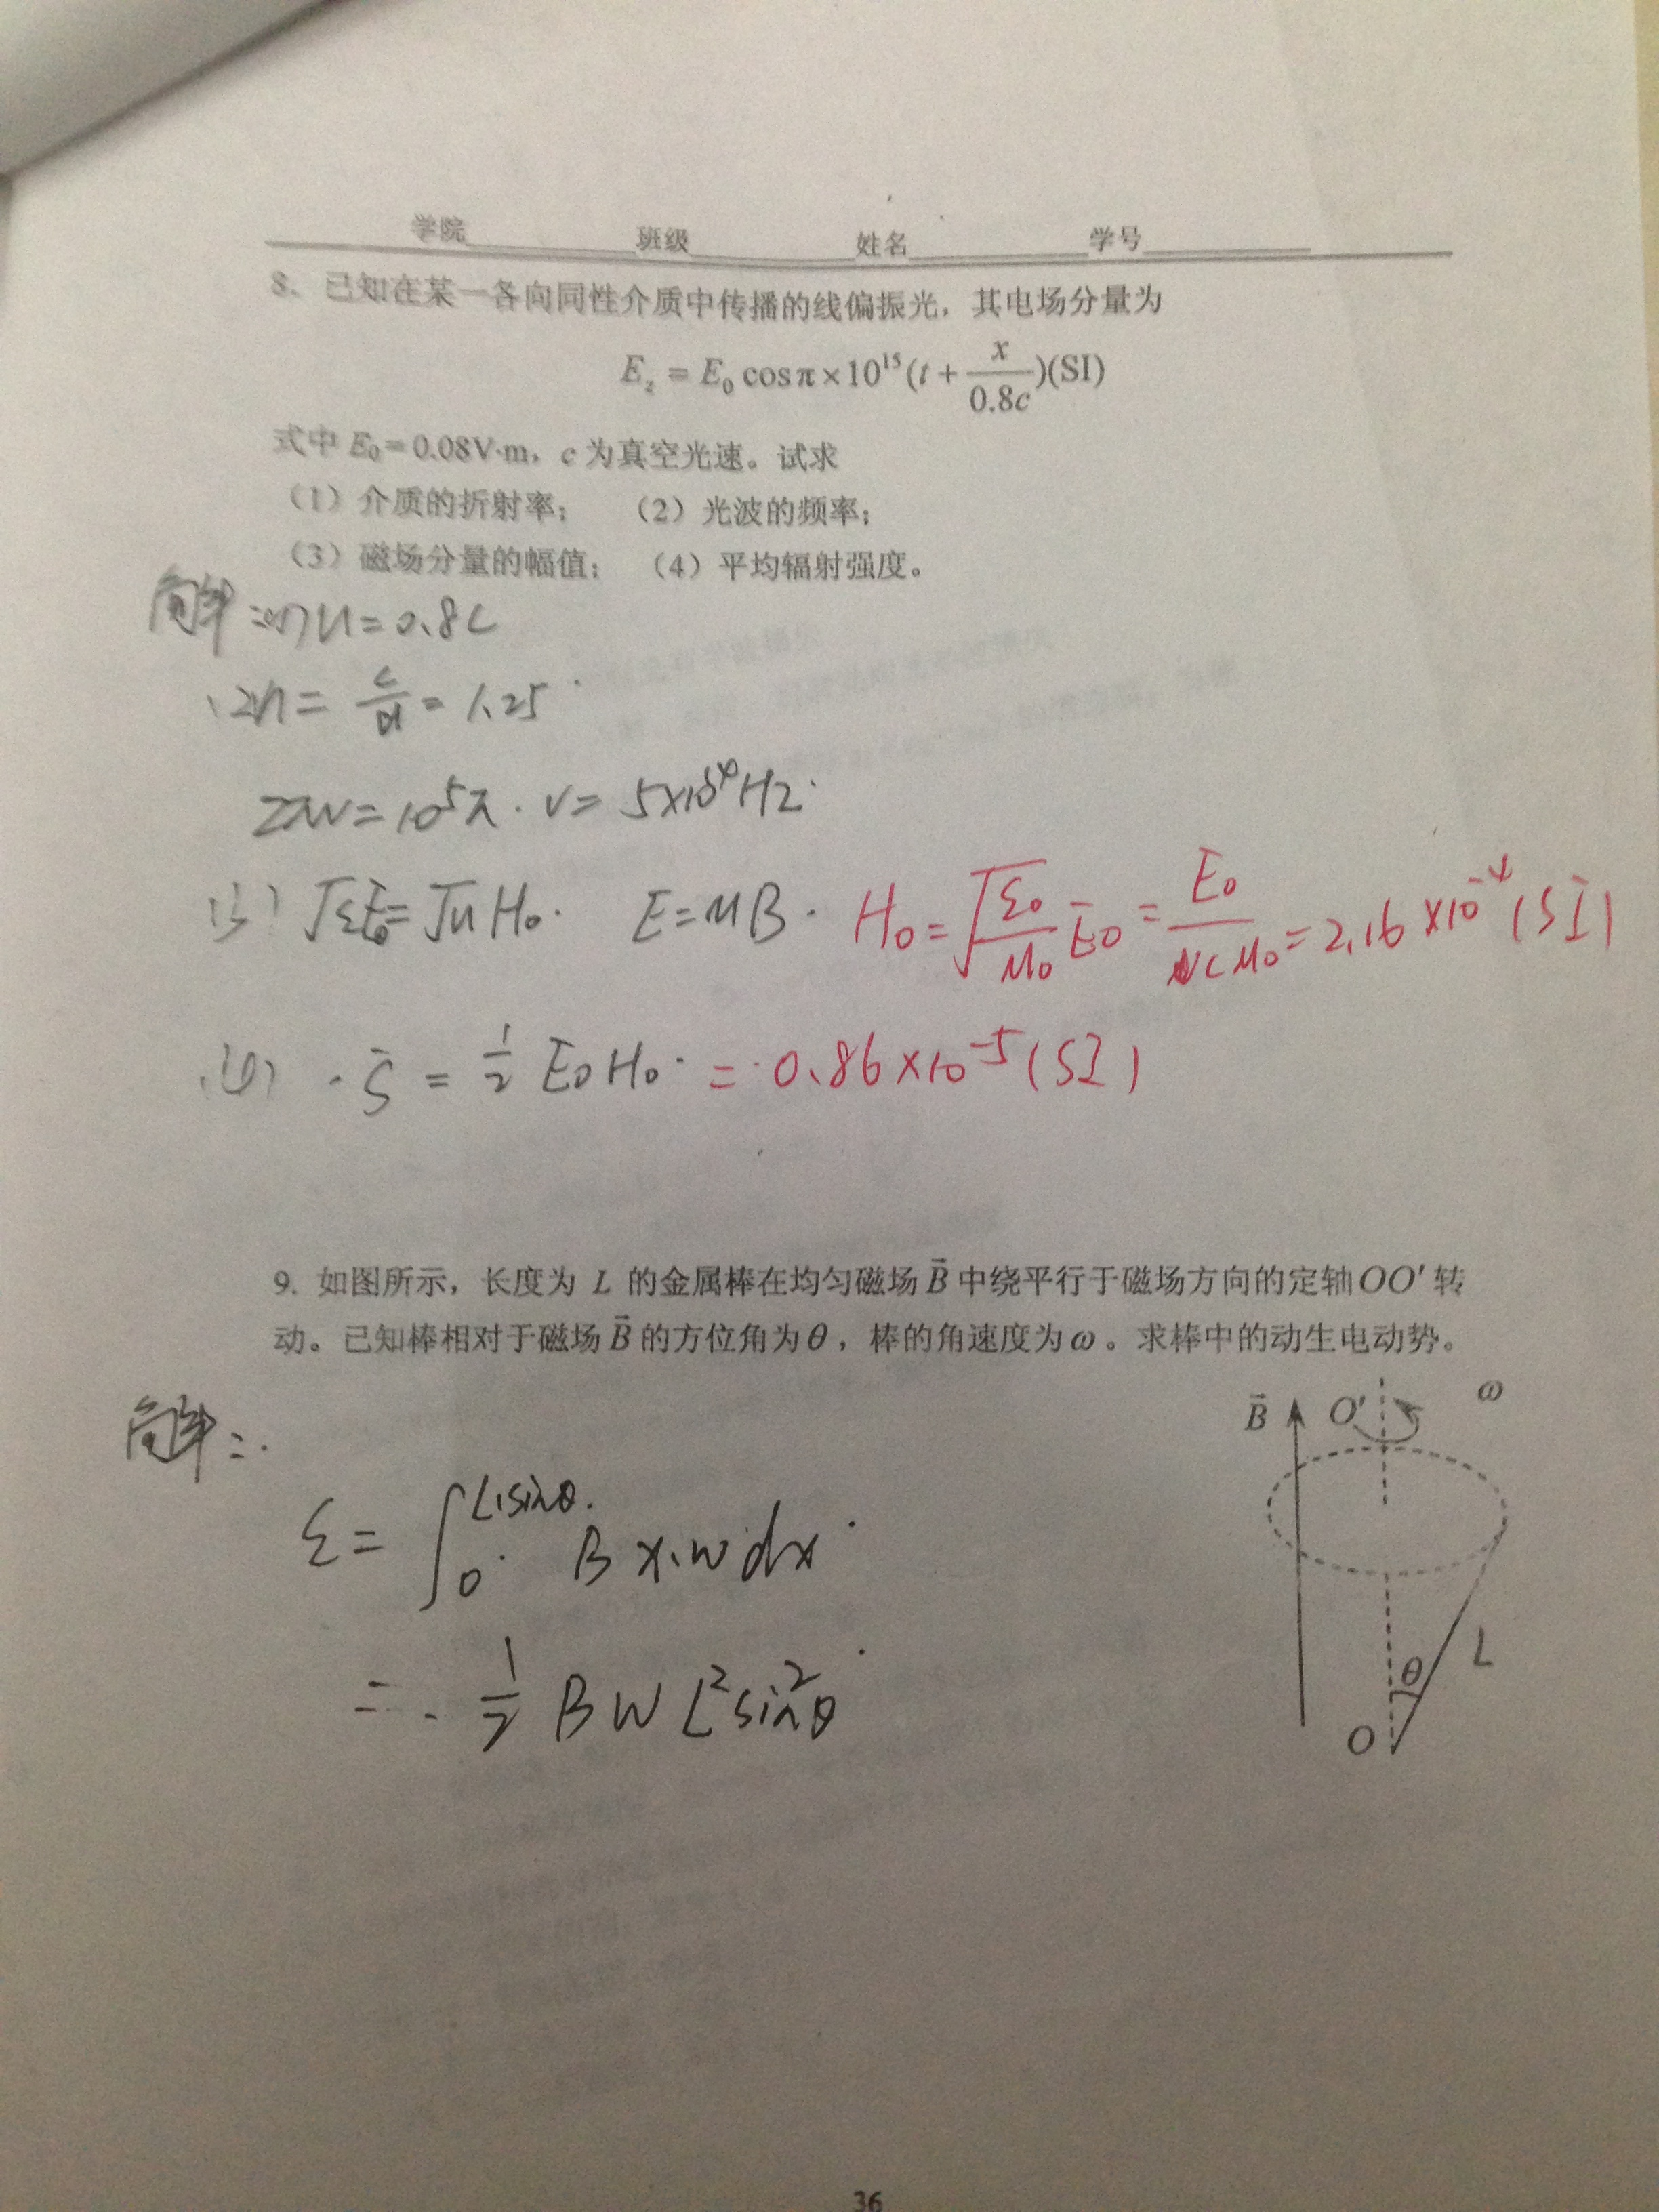 学院 班级 姓名 学号
8、已知在某一各向同性介质中传播的线偏振光，其电场分量为
E_z = E_0 cos π×10^15 (t + x/0.8c)(SI)
式中 E_0=0.08V·m，c 为真空光速。试求
（1）介质的折射率； （2）光波的频率；
（3）磁场分量的幅值； （4）平均辐射强度。
解: (1) u=0.8c
(2) n= c/u = 1.25
2πν=10^5π. ν= 5×10^14 Hz.
(3) √ε E_0=√μ H_0. E=μB. H_0=√(ε_0/μ_0) E_0 = E_0/(νcμ_0) = 2.16×10^-4 (SI)
(4) S = 1/2 E_0 H_0. = 0.86×10^-5 (SI)
9. 如图所示，长度为 L 的金属棒在均匀磁场 B 中绕平行于磁场方向的定轴OO′ 转
动。已知棒相对于磁场 B 的方位角为θ，棒的角速度为ω。求棒中的动生电动势。
B O′ ω
解:
ε = ∫_0^{L·sinθ} B x·w dx
= 1/2 B W L^2 sin^2θ
L
θ
O
36